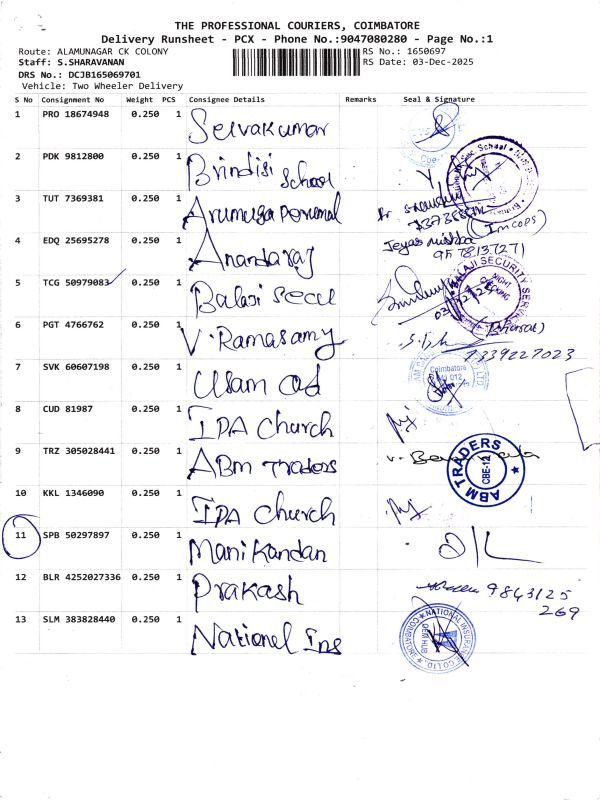 THE PROFESSIONAL COURIERS, COIMBATORE
Delivery Runsheet - PCX - Phone No.:9047080280 - Page No.:1
Route: ALAMUNAGAR CK COLONY RS No.: 1650697
Staff: S.SHARAVANAN RS Date: 03-Dec-2025
DRS No.: DCJB165069701
Vehicle: Two Wheeler Delivery
S No Consignment No Weight PCS Consignee Details Remarks Seal & Signature
1 PRO 18674948 0.250 1 Selvakumar
2 PDK 9812800 0.250 1 Brindisi School
3 TUT 7369381 0.250 1 Arumuga Perumal
(Imcops)
4 EDQ 25695278 0.250 1 Anandaraj
9578137271
5 TCG 50979083 0.250 1 Balaji Secu
BALAJI SECURITY SERV
6 PGT 4766762 0.250 1 V. Ramasamy
9339227023
7 SVK 60607198 0.250 1 Usam ad
Coimbatore
8 CUD 81987 0.250 1 IPA Church
9 TRZ 305028441 0.250 1 ABM Traders
ABM TRADERS
CBE-12
10 KKL 1346090 0.250 1 IPA Church
11 SPB 50297897 0.250 1 Manikandan D/L
12 BLR 4252027336 0.250 1 Prakash 9843125
269
13 SLM 383828440 0.250 1 National Ins
NATIONAL INSURANCE CO LTD. COIMBATORE